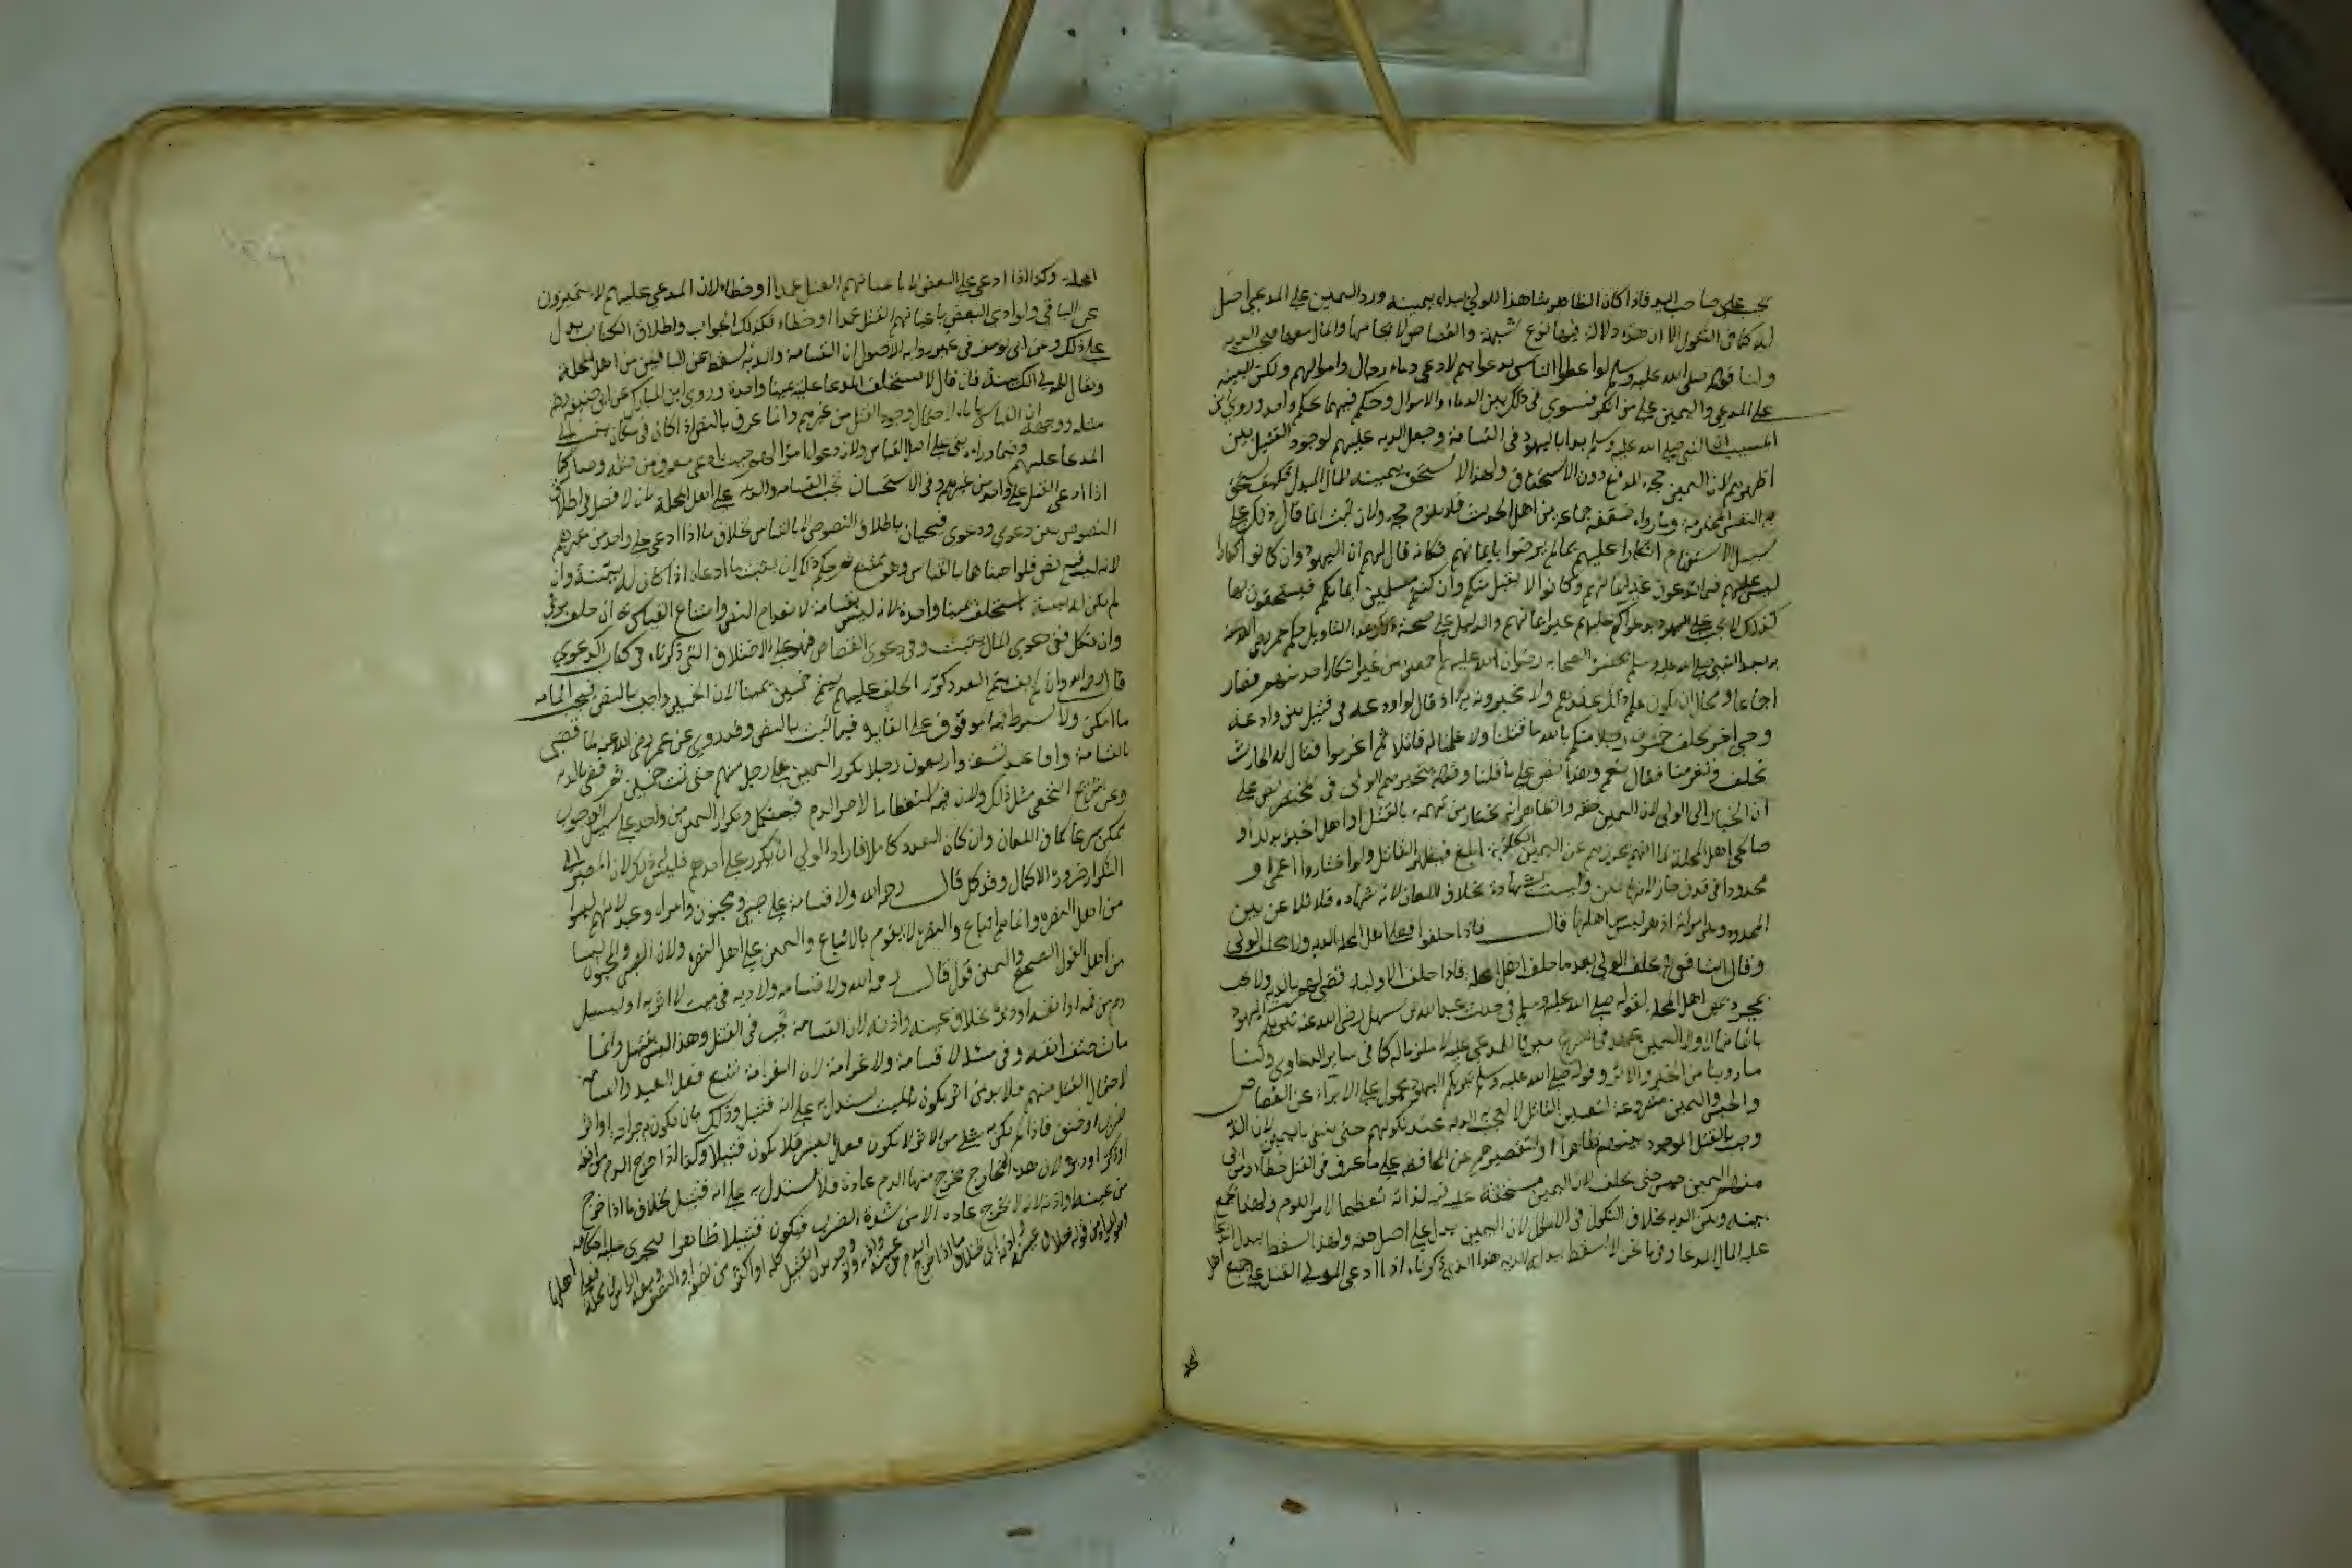 تجب على صاحب اليد فاذا كان الظاهر شاهدا للولي يبداء بيمينه ورد اليمين على المدعي اصل
له كما في النكول الا ان هذه دلالة فيها نوع شبهة والقصاص لا يجامعها والمال يجب معها فلهذا وجبت الديه
ولنا قوله صلى الله عليه وسلم لو اعطي الناس بدعواهم لادعى دماء رجال واموالهم ولكن البينه
على المدعي واليمين على من انكر فسوى في ذلك بين الدماء والاموال وحكم فيهما بحكم واحد وروى ابن
المسيب ان النبي صلى الله عليه وسلم بدا باليهود في القسامة وجعل الديه عليهم لوجود القتيل بين
اظهرهم لان اليمين حجة للدفع دون الاستحقاق ولهذا لا يستحق بيمينه المال المبتذل فكيف يستحق
به النفس المحترمة وما رواه ضعفه جماعة من اهل الحديث فلا يلزم حجة ولان ثبت انما قال ذلك على
سبيل الاستفهام انكارا عليهم بما لم يرضوا بايمانهم فكانه قال لهم ان اليهود وان كانوا كفارا
ليس عليهم فيما تدعون غير ايمانهم وكما لا يقبل منكم وان كنتم مسلمين ايمانكم فتستحقون بها
كذلك لا يجب على اليهود بدعواكم عليهم غير ايمانهم والدليل على صحة هذا التاويل حكم عمر رضي الله عنه
بعد النبي صلى الله عليه وسلم بحضرة الصحابه رضوان الله عليهم اجمعين من غير انكار احد منهم فصار
اجماعا ومحال ان يكون علم عندهم ولا يخبرونه به اذ قال لوادعه في قتيل بين وادعة
وحي اخر يحلف خمسون رجلا منكم بالله ما قتلنا ولا علمنا له قاتلا ثم اغرموا فقال له الحارث
نحلف وتغرمنا فقال نعم وهذا نص على ما قلنا وقوله يتخيرهم الولي في المختصر نص على
ان الخيار الى الولي لان اليمين حقه والظاهر انه يختار من يتهمه بالقتل او اهل الخبرة بذلك او
صالحي اهل المحلة لما انهم تحرزهم عن اليمين الكاذبة ابلغ فيظهر القاتل ولو اختاروا اعمى او
محدودا في قذف جاز لانها يمين وليست بشهادة بخلاف اللعان لانه شهادة فلا تلاعن بين
المحدود وبين امراته اذ هو ليس اهلها قال فاذا حلفوا فعلى اهل المحلة الديه ولا يحلف الولي
وقال الشافعي يحلف الولي بعد ما حلف اهل المحلة فاذا حلف الاولياء قضي لهم بالديه ولا تجب
بمجرد يمين اهل المحلة لقوله صلى الله عليه وسلم في حديث عبد الله بن سهل رضي الله عنه تبريكم اليهود
بايمانها ولان اليمين عهد في الشرع مبرئا للمدعي عليه لا ملزما له كما في ساير الدعاوى ولنا
ما روينا من الخبر والاثر وقوله صلى الله عليه وسلم تبريكم اليهود محمول على الابراء عن القصاص
والحبس واليمين مشروعة لتعيين القاتل لا لتجب الديه عند نكولهم حتى ينتفي باليمين لان الديه
وجبت بالقتل الموجود منهم ظاهرا او لتقصيرهم عن المحافظة على ما عرف في القتل خطاء ومن ابى
منهم اليمين حبس حتى يحلف لان اليمين مستحقة عليه لذاته تعظيما لامر الدم ولهذا يجمع
بينه وبين الديه بخلاف النكول في الاموال لان اليمين بدل على اصل حقه ولهذا يسقط ببدل المدعا
عليه المال المدعا وفيما نحن لا يسقط ببذل الديه هذا الذي ذكرناه اذا ادعى الولي القتل على جميع اهل
المحلة وكذا اذا ادعى على البعض لا باعيانهم القتل عمدا او خطاء لان المدعي عليهم لا يتميزون
عن الباقي ولو ادعى البعض باعيانهم القتل عمدا او خطاء فكذلك الجواب واطلاق الكتاب يدل
على ذلك وعن ابي يوسف في غير رواية الاصول ان القسامة والديه تسقط عن الباقين من اهل المحلة
ويقال للولي الك بينة فان قال لا يستحلف المدعا عليه يمينا واحدة وروى ابن المبارك عن ابي حنيفة رحمه
مثله ووجهه ان القياس ياباه لاحتمال وجود القتل من غيرهم وانما عرف بالنص اذا كان في مكان ينسب الى
المدعا عليهم وفيما وراءه بقي على اصل القياس
اذا ادعى القتل على واحد من غيرهم وفي الاستحسان تجب القسامة والديه على اهل المحلة لانه لا فصل في اطلاق
النصوص بين دعوى ودعوى فيجبان باطلاق النصوص لا بالقياس بخلاف ما اذا ادعى على واحد من غيرهم
لانه ليس فيه نص فلو اوجبناها بالقياس وهو ممتنع ثم حكم ذلك ان يثبت ما ادعاه اذا كان له بينة وان
لم يكن له بينة استحلفه يمينا واحدة لانه ليس بقسامة لانعدام النص وامتناع القياس ثم ان حلف برئ
وان نكل ففي دعوى المال يثبت وفي دعوى القصاص فهو على الاختلاف الذي ذكرناه في كتاب الدعوى
قال رحمه الله وان لم يتم العدد كرر الحلف عليهم ليتم خمسين يمينا لان الخمسين واجب بالنص فيجب اتمامه
ما امكن ولا يشترط فيه الوقوف على الفايدة فيما ثبت بالنص وقد روي عن عمر رضي الله عنه لما قضى
بالقسامة وافا عنده تسعة واربعون رجلا فكرر اليمين على رجل منهم حتى تمت خمسين ثم قضى بالديه
وعن شريح النخعي مثل ذلك ولان فيه استعظاما لامر الدم فيكمل وتكرار اليمين من واحد على سبيل الوجوب
ممكن شرعا كما في اللعان وان كان العدد كاملا فاراد الولي ان يكرر على احدهم فليس له ذلك لان المصير الى
التكرار ضرورة الاكمال وقد كمل قال رحمه الله ولا قسامة على صبي ومجنون وامراة وعبد لانهم ليسوا
من اهل النصرة وانما هم اتباع والنصرة لا يقوم بالاتباع واليمين على اهل النصرة ولان الصبي والمجنون ليسا
من اهل القول الصحيح واليمين قول قال رحمه الله ولا قسامة ولا دية في ميت لا اثر به او يسيل
دم من فمه او انفه او دبره بخلاف عينه واذنه لان القسامة تجب في القتل وهذا ليس بقتيل وانما
مات حتف انفه وفي مثله لا قسامة ولا غرامة لان الغرامة تتبع فعل العبد والقسامة
لاحتمال القتل منهم فلا بد من اثر يكون بالميت يستدل به على انه قتيل وذلك بان يكون به جراحة او اثر
ضرب او خنق فاذا لم يكن به شيء من الاثر لا يكون فعل البشر فلا يكون قتيلا وكذا اذا خرج الدم من انفه
او ذكره او دبره لان هذه المخارج يخرج منها الدم عادة فلا يستدل به على انه قتيل بخلاف ما اذا خرج
من عينه واذنه لانه لا يخرج عادة الا من شدة الضرب فيكون قتيلا ظاهرا فيجري عليه احكامه